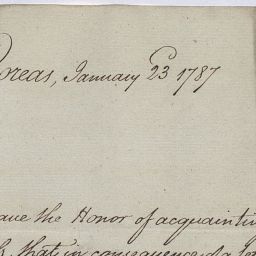 Boreas, January 23 1787
ave the Honor of acquaintin
that in consequence of a